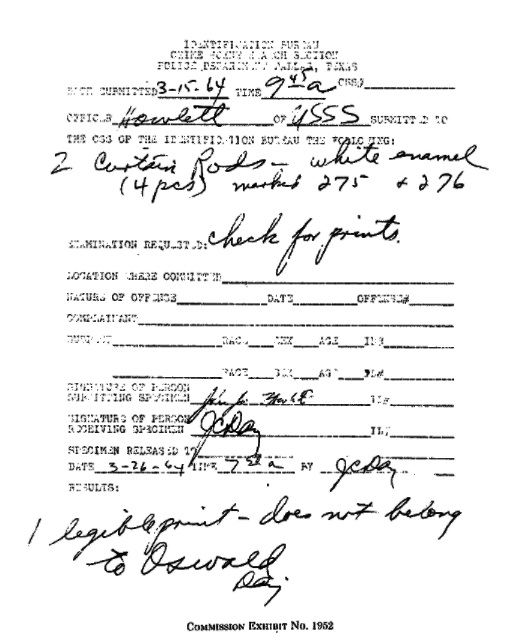 IDENTIFICATION BUREAU
CRIME SCENE SEARCH SECTION
POLICE DEPARTMENT DALLAS, TEXAS
DATE SUBMITTED 3-15-64 TIME 9 45 a CSS#
OFFICER Howlett OF USSS SUBMITTED TO
THE CSS OF THE IDENTIFICATION BUREAU THE FOLLOWING:
2 Curtain Rods - white enamel
(4 pcs) marked 275 + 276
EXAMINATION REQUESTED: check for prints.
LOCATION WHERE COMMITTED
NATURE OF OFFENSE DATE OFFENSE#
COMPLAINANT
SUSPECT RACE SEX AGE ID#
RACE SEX AGE ID#
SIGNATURE OF PERSON
SUBMITTING SPECIMEN ID#
SIGNATURE OF PERSON
RECEIVING SPECIMEN JCDay ID#
SPECIMEN RELEASED TO
DATE 3-26-64 TIME 7 a BY JCDay
RESULTS:
1 legible print - does not belong
to Oswald
Day
COMMISSION EXHIBIT NO. 1952